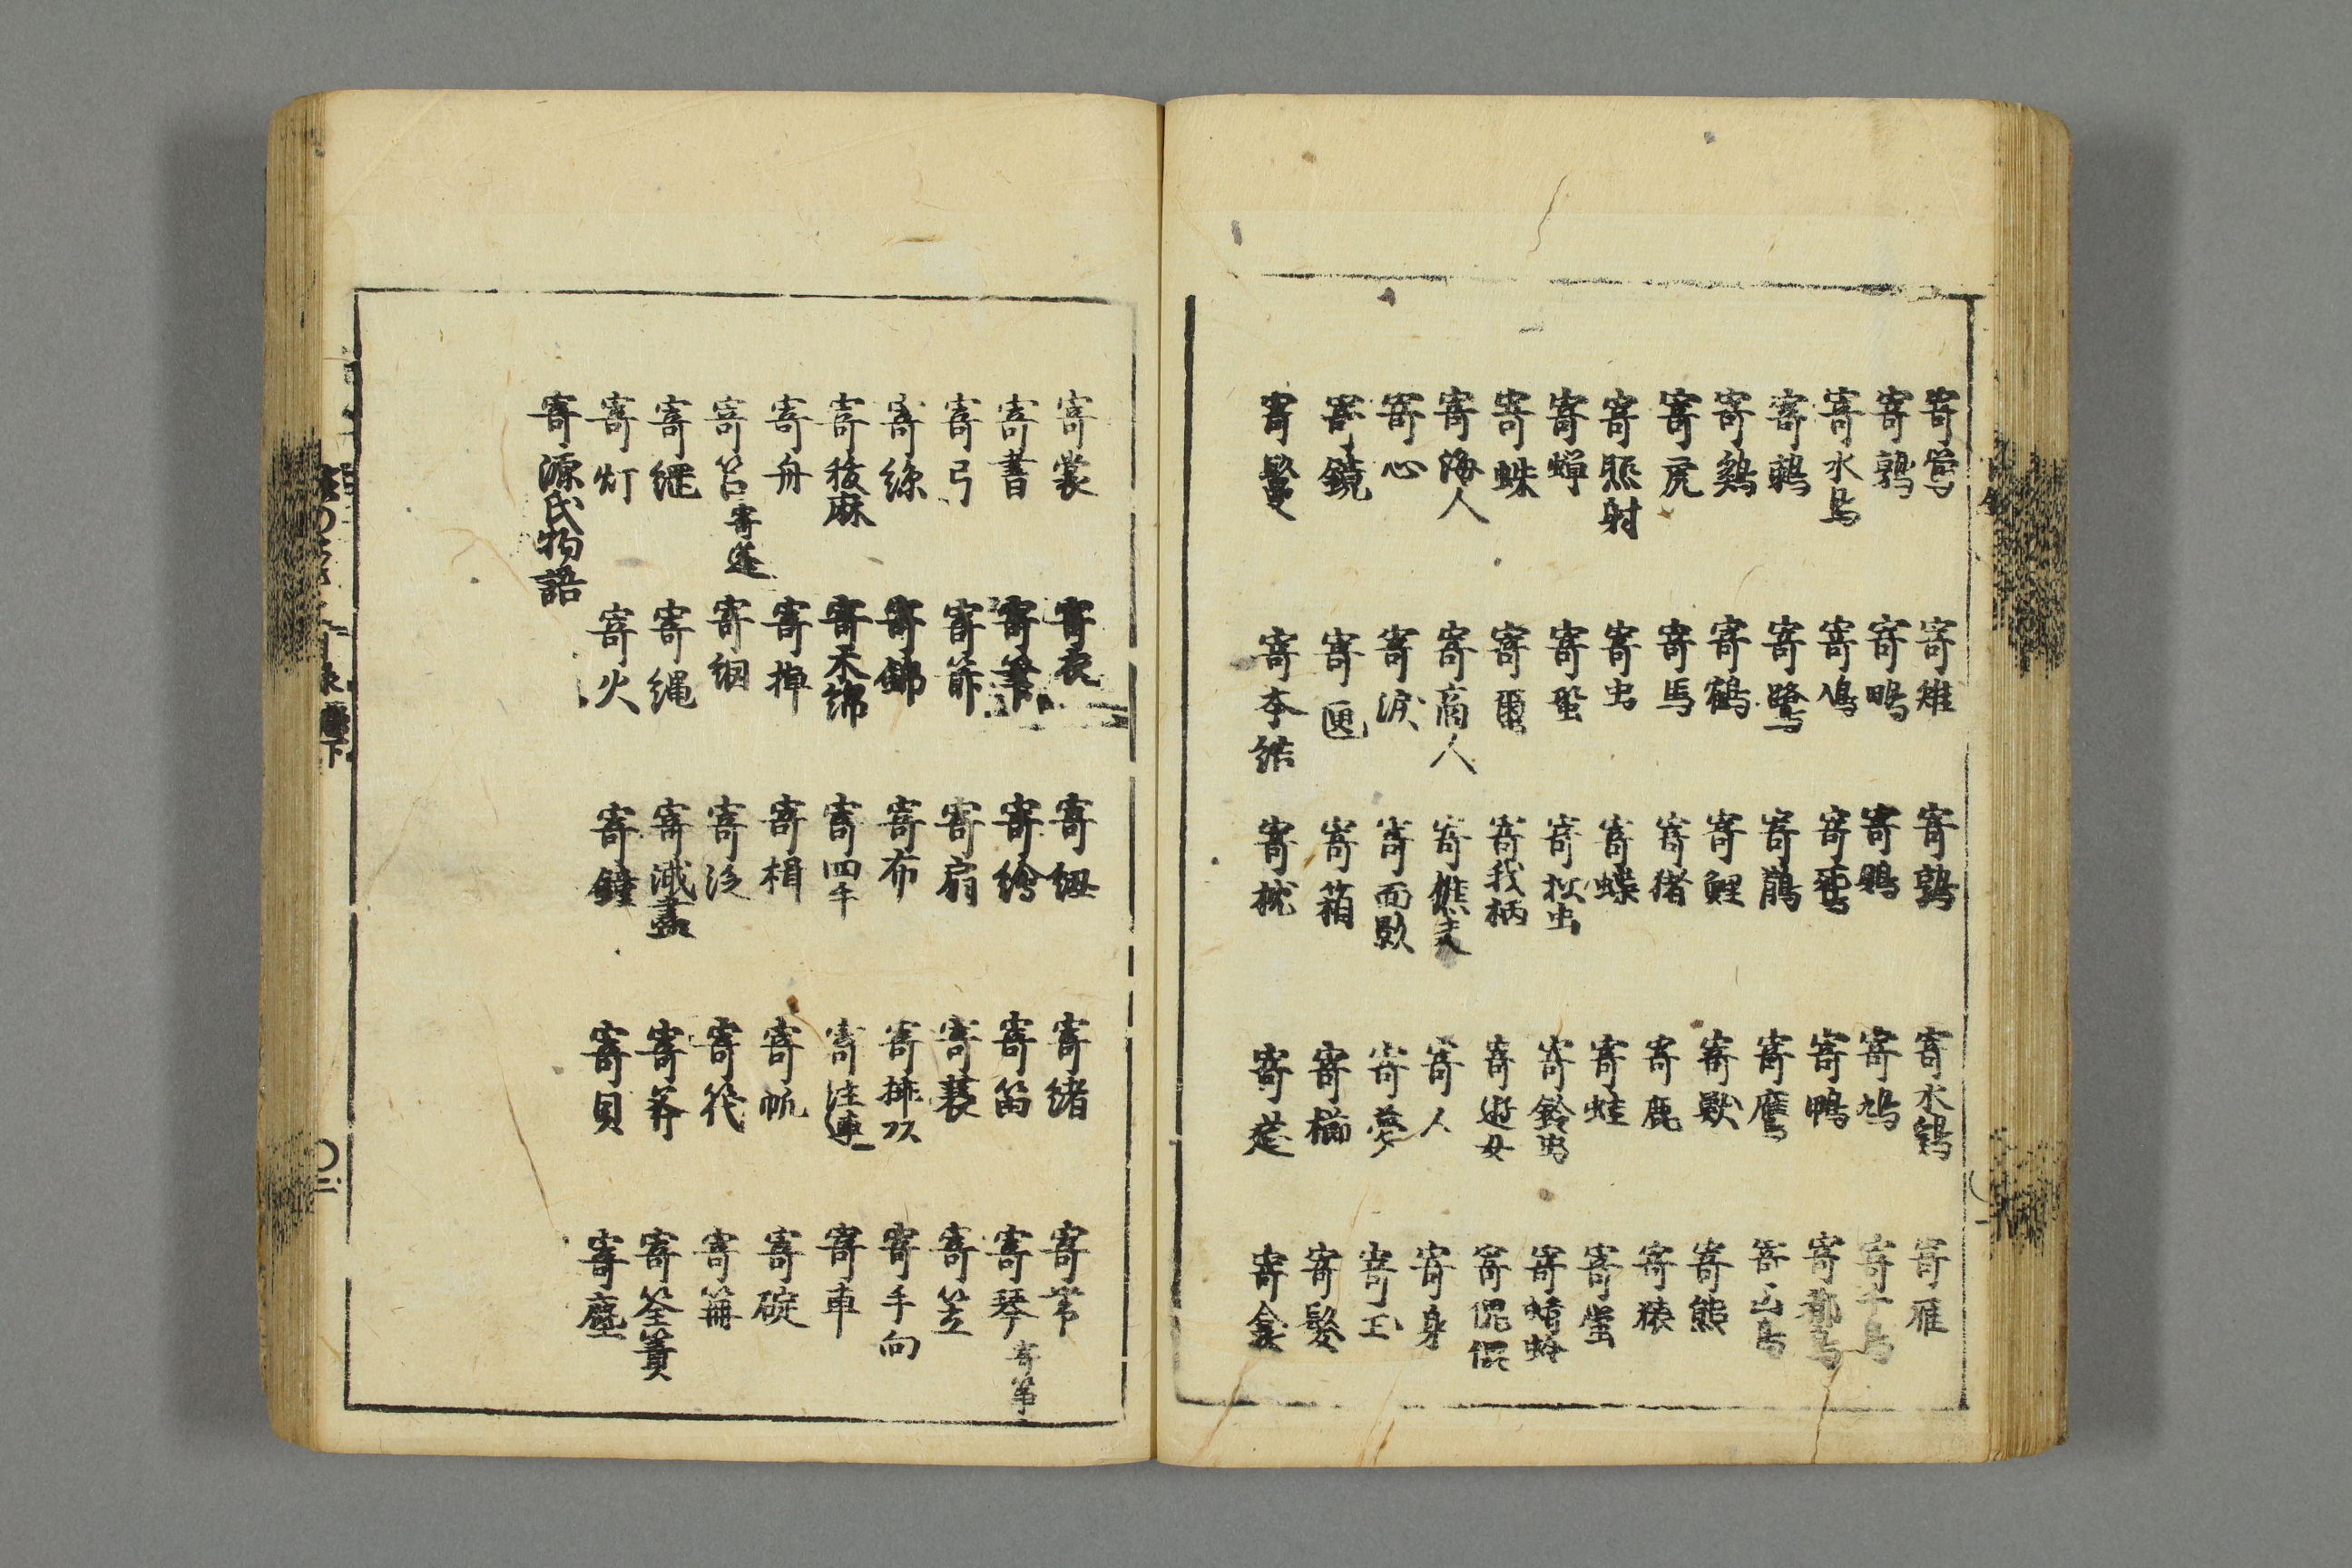 寄鶯 寄雉 寄鶉 寄水鶏 寄雁
寄鶉 寄鴫 寄鵙 寄鳩 寄千鳥
寄水鳥 寄鳰 寄鴛 寄鴨 寄都鳥
寄鶴 寄鷺 寄鵲 寄鷹 寄山鳥
寄鶏 寄鶴 寄鯉 寄獣 寄熊
寄虎 寄馬 寄猪 寄鹿 寄猿
寄照射 寄虫 寄蝶 寄蛙 寄蛍
寄蝉 寄蛬 寄松虫 寄鈴虫 寄蜻蛉
寄蛛 寄繭 寄我柄 寄遊女 寄傀儡
寄海人 寄商人 寄樵夫 寄人 寄身
寄心 寄涙 寄面影 寄夢 寄玉
寄鏡 寄匣 寄箱 寄櫛 寄髪
寄鬘 寄本結 寄枕 寄莚 寄衾
寄裳 寄衣 寄紐 寄緒 寄帯
寄書 寄筆 寄絵 寄笛 寄琴 寄箏
寄弓 寄箭 寄扇 寄蓑 寄笠
寄糸 寄錦 寄布 寄手向
寄秡麻 寄木綿 寄四手 寄注連 寄車
寄舟 寄棹 寄楫 寄帆 寄碇
寄苫 寄篷 寄網 寄泛 寄筏
寄纜 寄縄 寄筌
寄灯 寄火 寄鐘 寄貝 寄塵
寄源氏物語